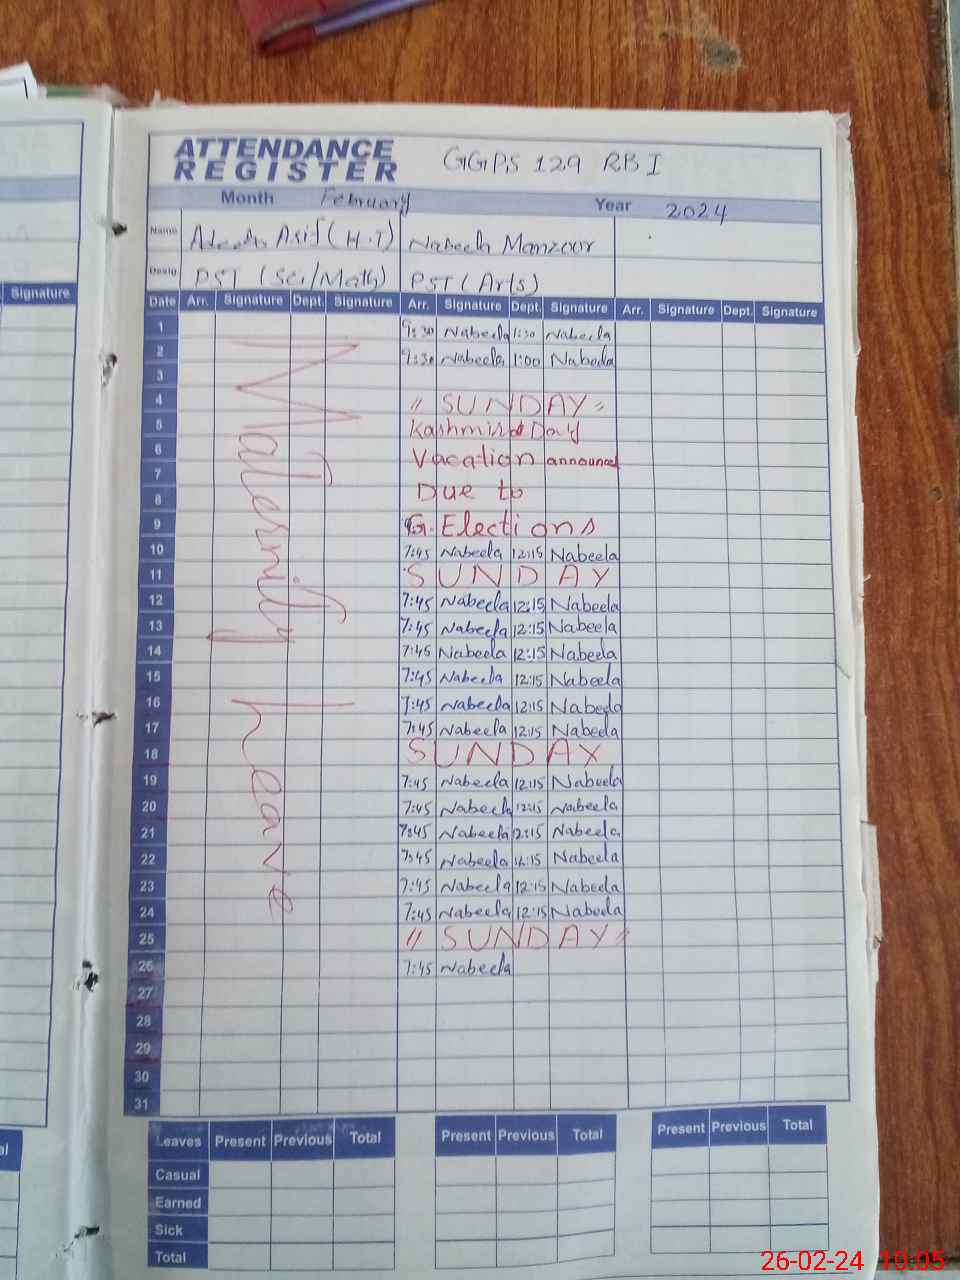 ATTENDANCE
REGISTER
GGPS 129 RB I
Month February Year 2024
Name Asif (H.T) Nabeela Manzoor
Desig PST (Sci/Math) PST (Arts)
Date Arr. Signature Dept. Signature Arr. Signature Dept. Signature Arr. Signature Dept. Signature
1 9:30 Nabeela 1:30 Nabeela
2 9:30 Nabeela 1:00 Nabeela
3
4 " SUNDAY "
5 Kashmir Day
6 Vacation announced
7
8 Due to
9 G. Elections
10 7:45 Nabeela 12:15 Nabeela
11 SUNDAY
12 7:45 Nabeela 12:15 Nabeela
13 7:45 Nabeela 12:15 Nabeela
14 7:45 Nabeela 12:15 Nabeela
15 7:45 Nabeela 12:15 Nabeela
16 7:45 Nabeela 12:15 Nabeela
17 7:45 Nabeela 12:15 Nabeela
18 SUNDAY
19 7:45 Nabeela 12:15 Nabeela
20 7:45 Nabeela 12:15 Nabeela
21 7:45 Nabeela 12:15 Nabeela
22 7:45 Nabeela 12:15 Nabeela
23 7:45 Nabeela 12:15 Nabeela
24 7:45 Nabeela 12:15 Nabeela
25 " SUNDAY "
26 7:45 Nabeela
27
28
29
30
31
Maternity Leave
Leaves Present Previous Total Present Previous Total Present Previous Total
Casual
Earned
Sick
Total
Signature
26-02-24 10:05